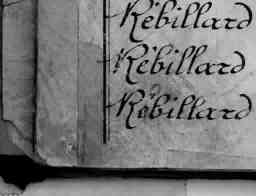 Rébillard
Rébillard
Rébillard